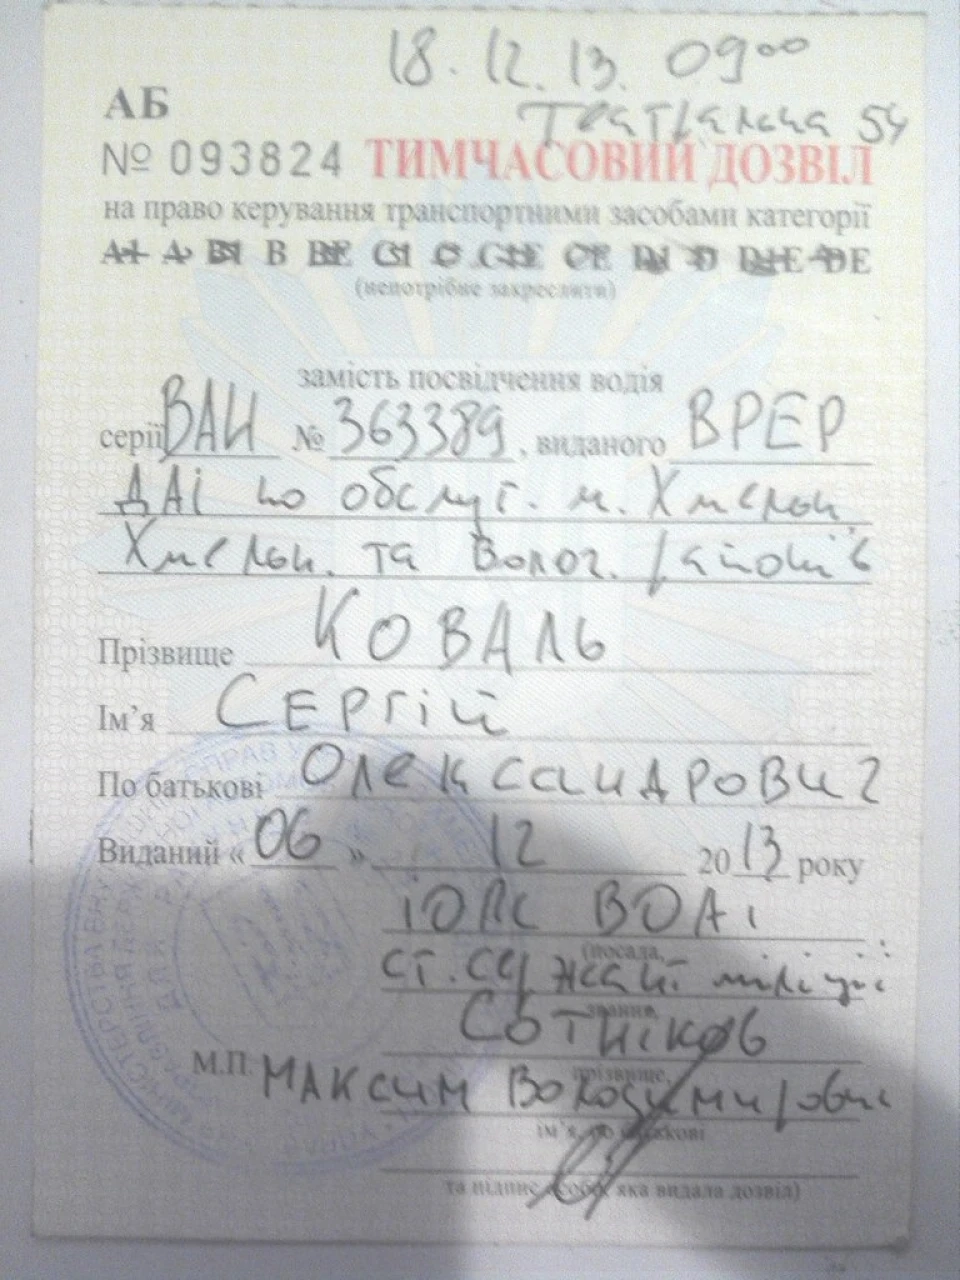 18.12.13. 09⁰⁰
АБ
Театральна 54
№ 093824 ТИМЧАСОВИЙ ДОЗВІЛ
на право керування транспортними засобами категорії
А1 А В1 В ВЕ С1 С С1Е СЕ D1 D D1E DE
(непотрібне закреслити)
замість посвідчення водія
серії ВАИ № 363389, виданого ВРЕР
ДАІ по обслуг. м. Хмельн.
Хмельн. та Волоч. районів
Прізвище КОВАЛЬ
Ім’я СЕРГІЙ
По батькові ОЛЕКСАНДРОВИЧ
Виданий « 06 » 12 2013 року
ВДАІ
(посада,
ст. сержант міліції
звання,
СОТНІКОВ
прізвище,
М.П. МАКСИМ Володимирович
ім’я, по батькові
та підпис особи, яка видала дозвіл)